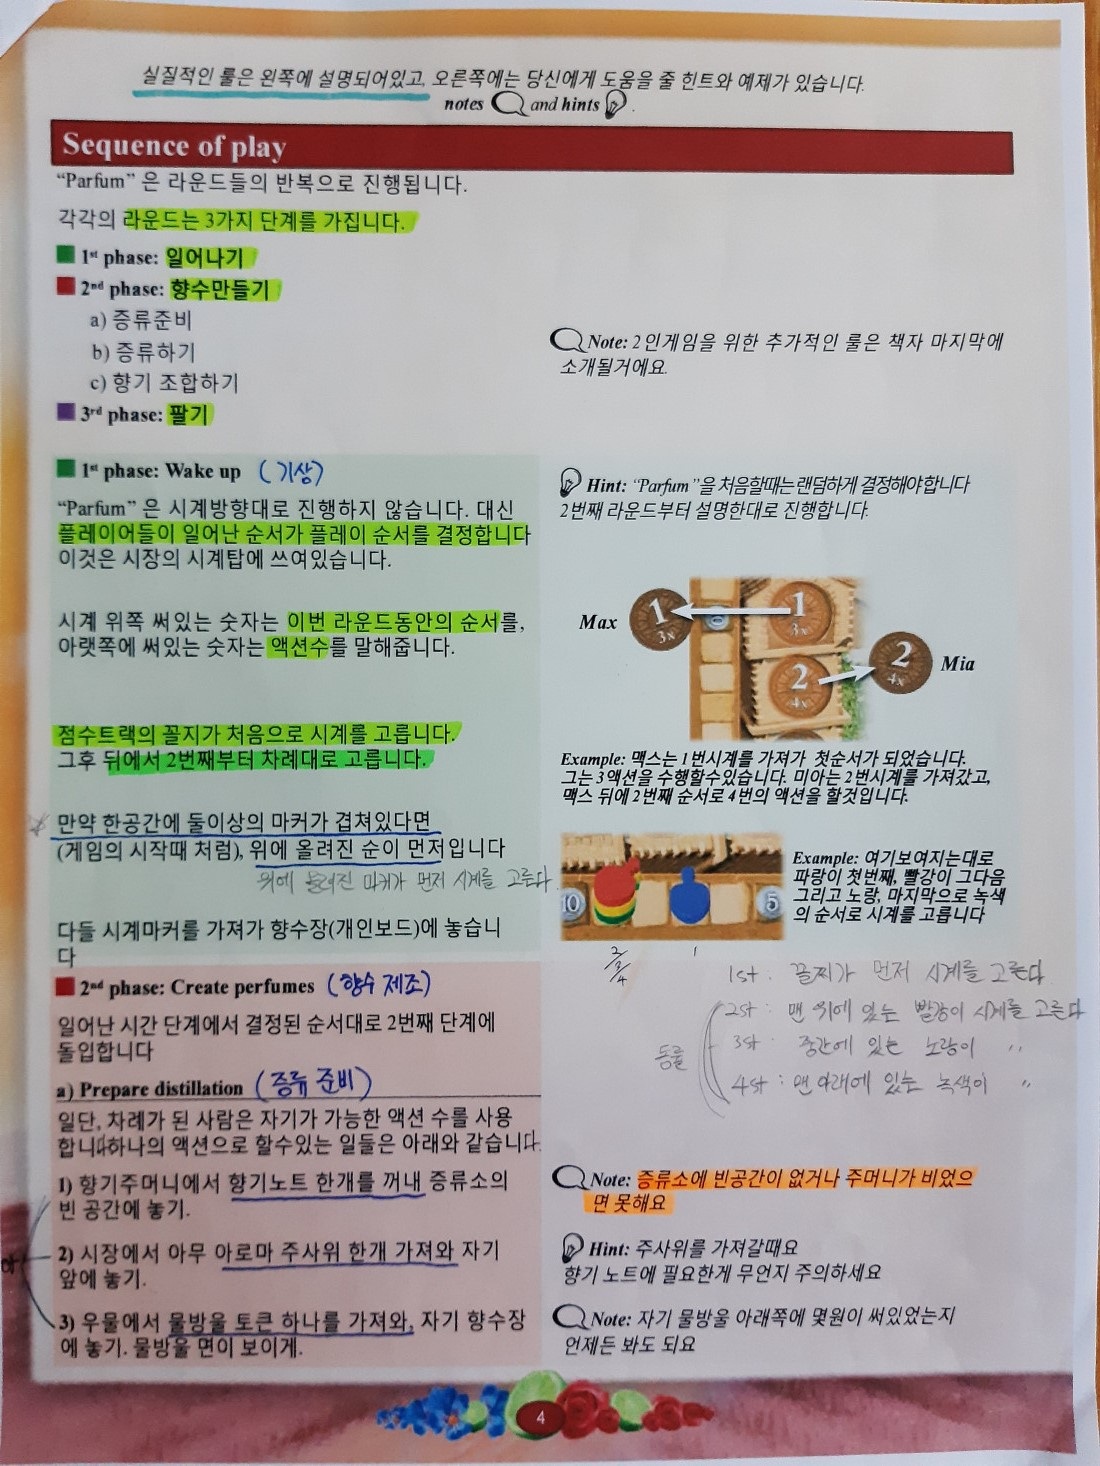 실질적인 룰은 왼쪽에 설명되어있고, 오른쪽에는 당신에게 도움을 줄 힌트와 예제가 있습니다.
notes and hints .
Sequence of play
“Parfum” 은 라운드들의 반복으로 진행됩니다.
각각의 라운드는 3가지 단계를 가집니다.
1st phase: 일어나기
2nd phase: 향수만들기
a) 증류준비
b) 증류하기
c) 향기 조합하기
3rd phase: 팔기
Note: 2인게임을 위한 추가적인 룰은 책자 마지막에
소개될거에요.
1st phase: Wake up (기상)
“Parfum” 은 시계방향대로 진행하지 않습니다. 대신
플레이어들이 일어난 순서가 플레이 순서를 결정합니다
이것은 시장의 시계탑에 쓰여있습니다.
시계 위쪽 써있는 숫자는 이번 라운드동안의 순서를,
아랫쪽에 써있는 숫자는 액션수를 말해줍니다.
점수트랙의 꼴지가 처음으로 시계를 고릅니다.
그후 뒤에서 2번째부터 차례대로 고릅니다.
만약 한공간에 둘이상의 마커가 겹쳐있다면
(게임의 시작때 처럼), 위에 올려진 순이 먼저입니다
위에 올려진 마커가 먼저 시계를 고른다.
다들 시계마커를 가져가 향수장(개인보드)에 놓습니
다
Hint: “Parfum”을 처음할때는 랜덤하게 결정해야합니다
2번째 라운드부터 설명한대로 진행합니다.
Max
1
3x
1
3x
2
4x
2
4x
Mia
Example: 맥스는 1번시계를 가져가 첫순서가 되었습니다.
그는 3액션을 수행할수있습니다. 미아는 2번시계를 가져갔고,
맥스 뒤에 2번째 순서로 4번의 액션을 할것입니다.
10
5
Example: 여기보여지는대로
파랑이 첫번째, 빨강이 그다음
그리고 노랑, 마지막으로 녹색
의 순서로 시계를 고릅니다
2/3/4
1
1st. 꼴찌가 먼저 시계를 고른다.
2st : 맨 위에 있는 빨강이 시계를 고른다
3st : 중간에 있는 노랑이 〃
4st : 맨 아래에 있는 녹색이 〃
동률
2nd phase: Create perfumes (향수 제조)
일어난 시간 단계에서 결정된 순서대로 2번째 단계에
돌입합니다
a) Prepare distillation (증류 준비)
일단, 차례가 된 사람은 자기가 가능한 액션 수를 사용
합니다하나의 액션으로 할수있는 일들은 아래와 같습니다.
1) 향기주머니에서 향기노트 한개를 꺼내 증류소의
빈 공간에 놓기.
2) 시장에서 아무 아로마 주사위 한개 가져와 자기
앞에 놓기.
3) 우물에서 물방울 토큰 하나를 가져와, 자기 향수장
에 놓기. 물방울 면이 보이게.
Note: 증류소에 빈공간이 없거나 주머니가 비었으
면 못해요
Hint: 주사위를 가져갈때요
향기 노트에 필요한게 무언지 주의하세요
Note: 자기 물방울 아래쪽에 몇원이 써있었는지
언제든 봐도 되요
4